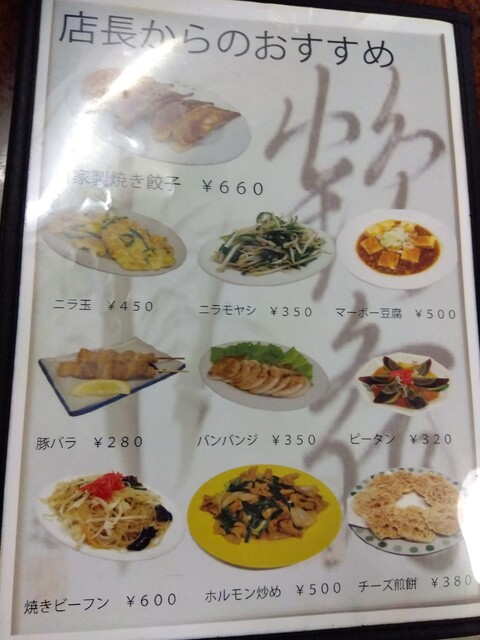 店長からのおすすめ
家製焼き餃子 ￥660
ニラ玉 ￥450
ニラモヤシ ￥350
マーボー豆腐 ￥500
豚バラ ￥280
バンバンジ ￥350
ピータン ￥320
焼きビーフン ￥600
ホルモン炒め ￥500
チーズ煎餅 ￥380